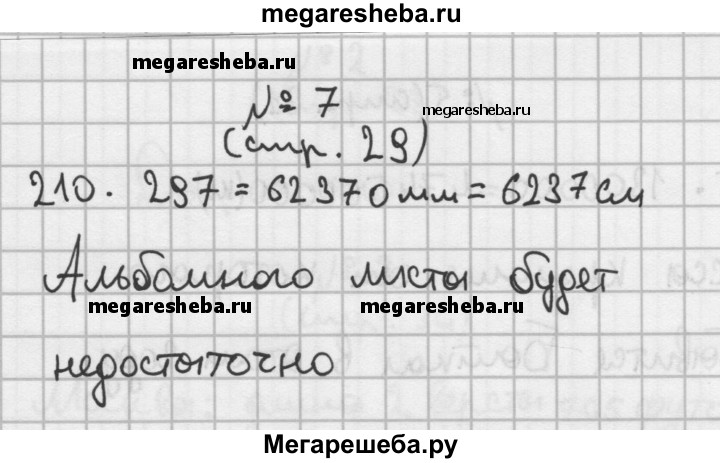 megaresheba.ru
megaresheba.ru
№ 7
megaresheba.ru
(стр. 29)
210 · 297 = 62370 мм = 6237 см
Альбомного листы будет
megaresheba.ru megaresheba.ru
недостыточно
Мегарешеба.ру